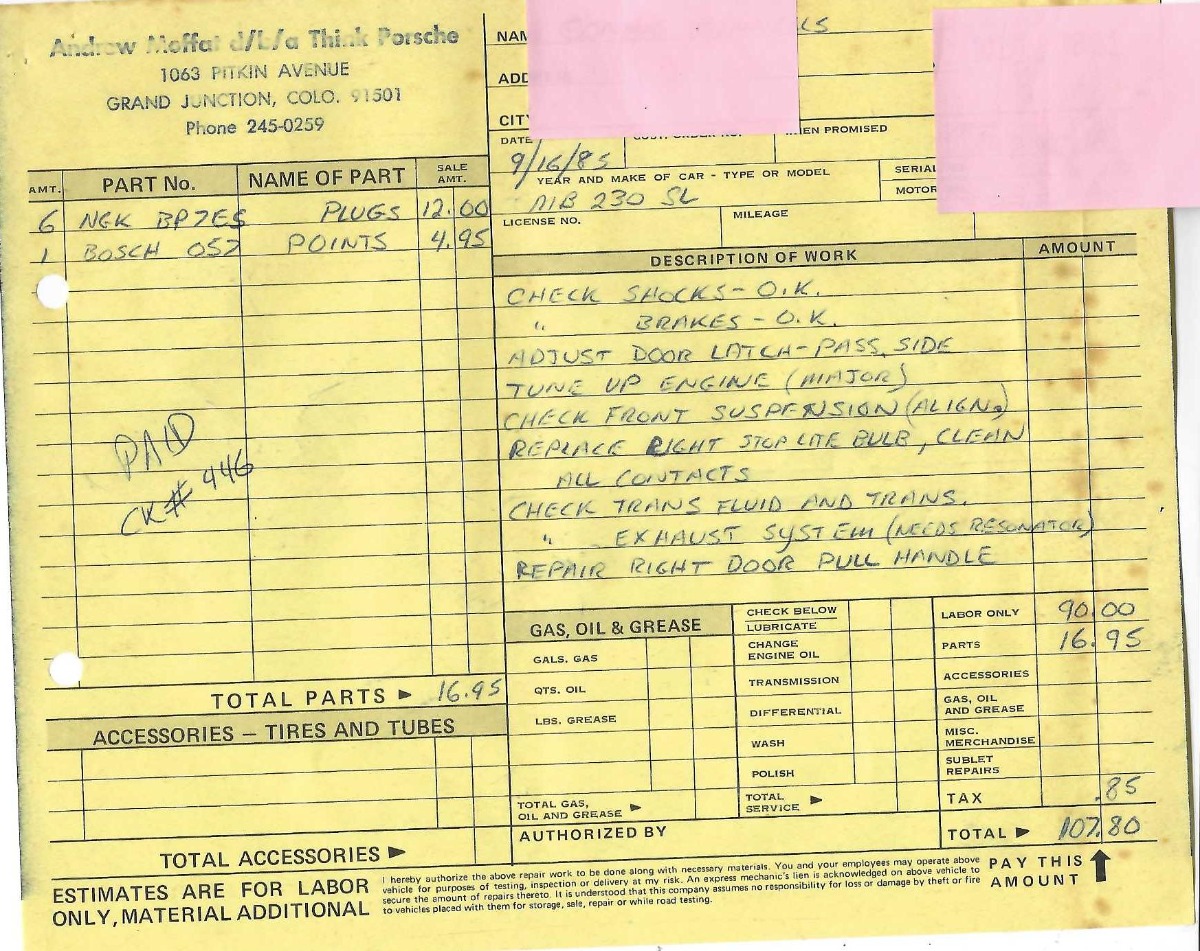 Andrew Moffat d/b/a Think Porsche
1063 PITKIN AVENUE
GRAND JUNCTION, COLO. 91501
Phone 245-0259
NAM
ADD
CITY
DATE
WHEN PROMISED
9/16/85
YEAR AND MAKE OF CAR - TYPE OR MODEL
SERIAL
MOTOR
MB 230 SL
LICENSE NO.
MILEAGE
AMT.
PART No.
NAME OF PART
SALE AMT.
6 NGK BP7ES PLUGS 12.00
1 BOSCH 057 POINTS 4.95
PAID
CK# 446
TOTAL PARTS ► 16.95
ACCESSORIES – TIRES AND TUBES
TOTAL ACCESSORIES ►
DESCRIPTION OF WORK
AMOUNT
CHECK SHOCKS - O.K.
" BRAKES - O.K.
ADJUST DOOR LATCH - PASS. SIDE
TUNE UP ENGINE (MAJOR)
CHECK FRONT SUSPENSION (ALIGN.)
REPLACE RIGHT STOP LITE BULB, CLEAN
ALL CONTACTS
CHECK TRANS FLUID AND TRANS.
" EXHAUST SYSTEM (NEEDS RESONATOR)
REPAIR RIGHT DOOR PULL HANDLE
GAS, OIL & GREASE
GALS. GAS
QTS. OIL
LBS. GREASE
TOTAL GAS,
OIL AND GREASE ►
CHECK BELOW
LUBRICATE
CHANGE
ENGINE OIL
TRANSMISSION
DIFFERENTIAL
WASH
POLISH
TOTAL
SERVICE ►
LABOR ONLY 90.00
PARTS 16.95
ACCESSORIES
GAS, OIL
AND GREASE
MISC.
MERCHANDISE
SUBLET
REPAIRS
TAX .85
AUTHORIZED BY
TOTAL ► 107.80
ESTIMATES ARE FOR LABOR
ONLY, MATERIAL ADDITIONAL
I hereby authorize the above repair work to be done along with necessary materials. You and your employees may operate above
vehicle for purposes of testing, inspection or delivery at my risk. An express mechanic's lien is acknowledged on above vehicle to
secure the amount of repairs thereto. It is understood that this company assumes no responsibility for loss or damage by theft or fire
to vehicles placed with them for storage, sale, repair or while road testing.
PAY THIS
AMOUNT